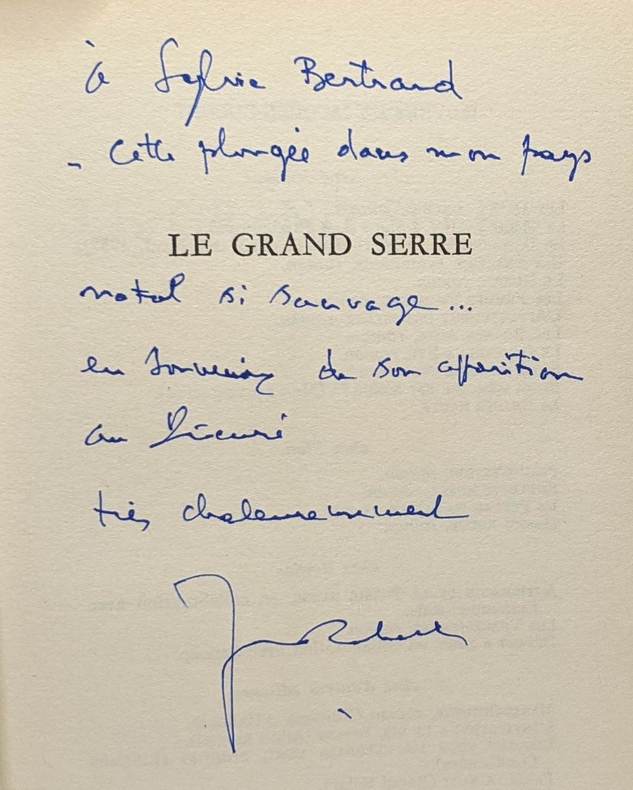 à Sylvie Bertrand
- Cette plongée dans mon pays
LE GRAND SERRE
natal si sauvage...
en souvenir de son apparition
au
très chaleureusement